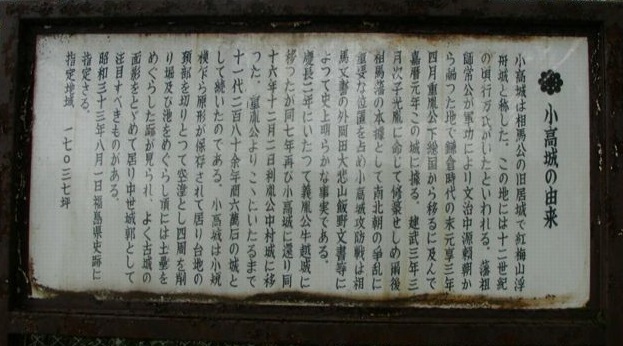 小高城の由来
小高城は相馬公の旧居城で紅梅山浮
舟城と称した。この地には十二世紀
の頃行方氏がいたといわれる。藩祖
師常公が軍功により文治中源頼朝か
ら賜つた地で鎌倉時代の末元享三年
四月重胤公下総国から移るに及んで
嘉暦元年この城に據る。建武三年三
月次子光胤に命じて修築せしめ爾後
相馬藩の本據として南北朝の争乱に
重要な位置を占め小高城攻防戦は相
馬文書の外岡田大悲山飯野文書等に
よつて史上明らかな事実である。
慶長二年にいたつて義胤公牛越城に
移つたが同七年再び小高城に還り同
十六年十二月二日利胤公中村城に移
つた。重胤公よりこゝにいたるまで
十一代二百八十余年間六萬石の城と
して続いたのである。小高城は小規
模乍ら原形が保存されて居り台地の
頚部を切りとつて空濠とし四周を削
り堀及び池をめぐらし頂には土壘を
めぐらした跡が見られ、よく古城の
面影をとゞめて居り中世城郭として
注目すべきものがある。
昭和三十三年八月一日福島県史跡に
指定さる。
指定地域 一七〇三七坪